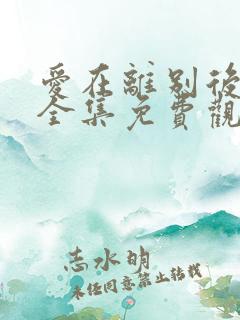 愛在離別後
全集免費觀
志水明
未經同意禁止轉載